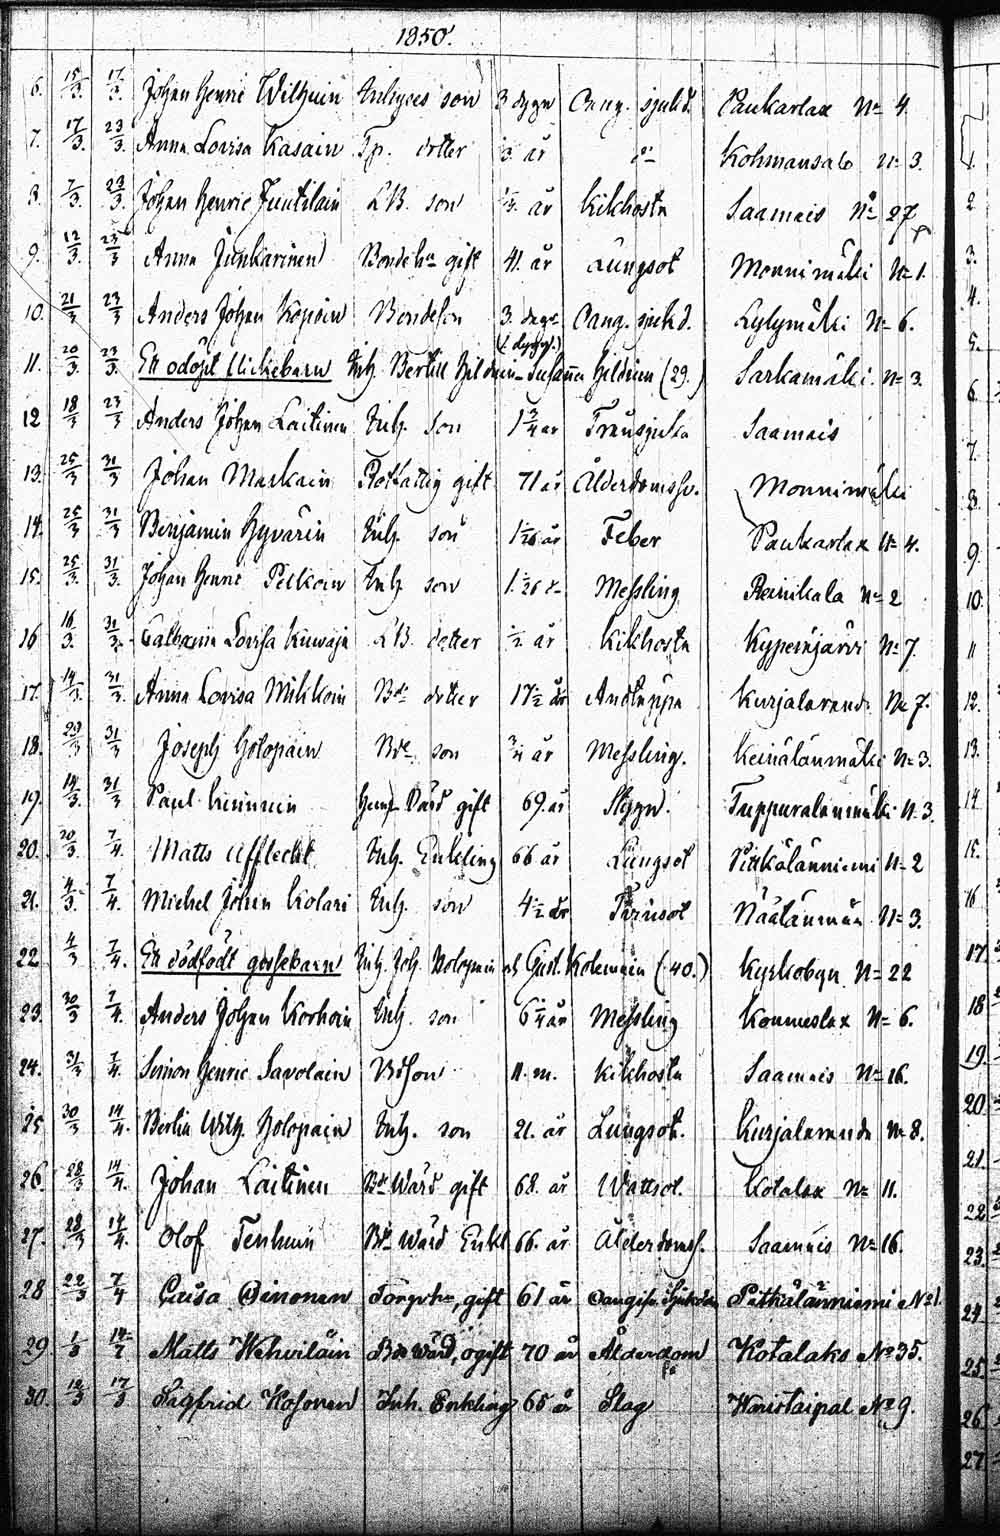 1850.
6. 15/3. 17/3. Johan Henric Wilhuin Inhyses son 3 dygn Oang. sjukd. Paukarlax No 4.
7. 17/3. 23/3. Anna Lovisa Kasain Tp. dotter 3 år do Kohmansalo No 3.
8. 7/3. 23/3. Johan Henric Juutilain LB. son år Kikhosta Saamais No 27
9. 12/3. 23/3 Anna Junkarinen Bondehu gift 41. år Lungsot Monnimäki No 1.
10. 21/3 23/3 Anders Johan Kopoin Bondeson 3. dygn Oang. sjukd. Lylymäki No 6.
11. 20/3. 23/3. Ett odöpt flickebarn Inh. Bertill Hildnin - Susanna Hildnin (29.) Sarkamäki. No 3.
12 18/3 23/3 Anders Johan Laitinen Inh. son 1 3/4 år Trånsjuka Saamais
13. 25/3 31/3 Johan Maskain Rotfattig gift 71 år Ålderdomssv. Monnimäki
14. 25/3 31/3 Benjamin Hyvärin Inh. son år Feber Paukarlax No 4.
15. 25/3. 31/3. Johan Henric Pelkoin Inh son Messling Reinikala No 2
16 16/3. 31/3. Catharina Lovisa Kuwaja LB. dotter 1/2. år Kikhosta Kypeinjärvi No 7.
17. 14/3. 31/3. Anna Lovisa Miikkoin Bde dotter 17 1/2 år Andtäppa Kurjalarande No 7.
18. 29/3 31/3 Joseph Holopain Bde son 3/4 år Messling. Keinälänmäki No 3.
19. 14/3. 31/3 Paul gift 69. år Stygn. Tuppuralanmäki N. 3.
20. 20/3. 7/4. Matts Afflecht Inh. Enkling 66 år Lungsot Pitkälänniemi No 2
21. 4/3. 7/4. Michel Johan Kolari Inh. son 4 1/2 år Tvinsot Näätänmaa No 3.
22 4/3 7/4. Ett dödfödt gossebarn Inh. Joh. Holopain och Gust. Kolemain (40.) Kyrkobyn No 22
23. 30/3 7/4. Anders Johan Korhoin Inh. son 6 1/4 år Messling Konnuslax No 6.
24. 31/3 7/4. Simon Henric Savolain Bdson 11. m. Kikhosta Saamais No 16.
25 30/3 14/4. Berlin Wilh. Holopain Inh. son 21. år Lungsot. Kurjalarande No 8.
26. 28/3 14/4. Johan Laitinen Bde Wärd gift 68. år Wattsot. Kotalax No 11.
27. 28/3 14/4. Olof Tenhuin Bde Wärd Enkl 66. år Ålderdomss. Saamais No 16.
28 22/3 7/4 Caisa Oinonen Torphu, gift 61 år Oangifn Sjukdom Pitkälänniemi No 1.
29 1/3 14/7 Matts Wehviläin Bde Wärd, ogift 70 år Ålderdom Kotalaks No 35.
30. 12/3 17/3 Sigfrid Kosonen Inh. Enkling 65 år Slag Waristaipal No 9.
1.
2
3.
4.
5.
6.
7.
8.
9.
10.
11
12.
13.
14
15.
16
17
18
19.
20.
21.
22
23.
24
25.
26.
27